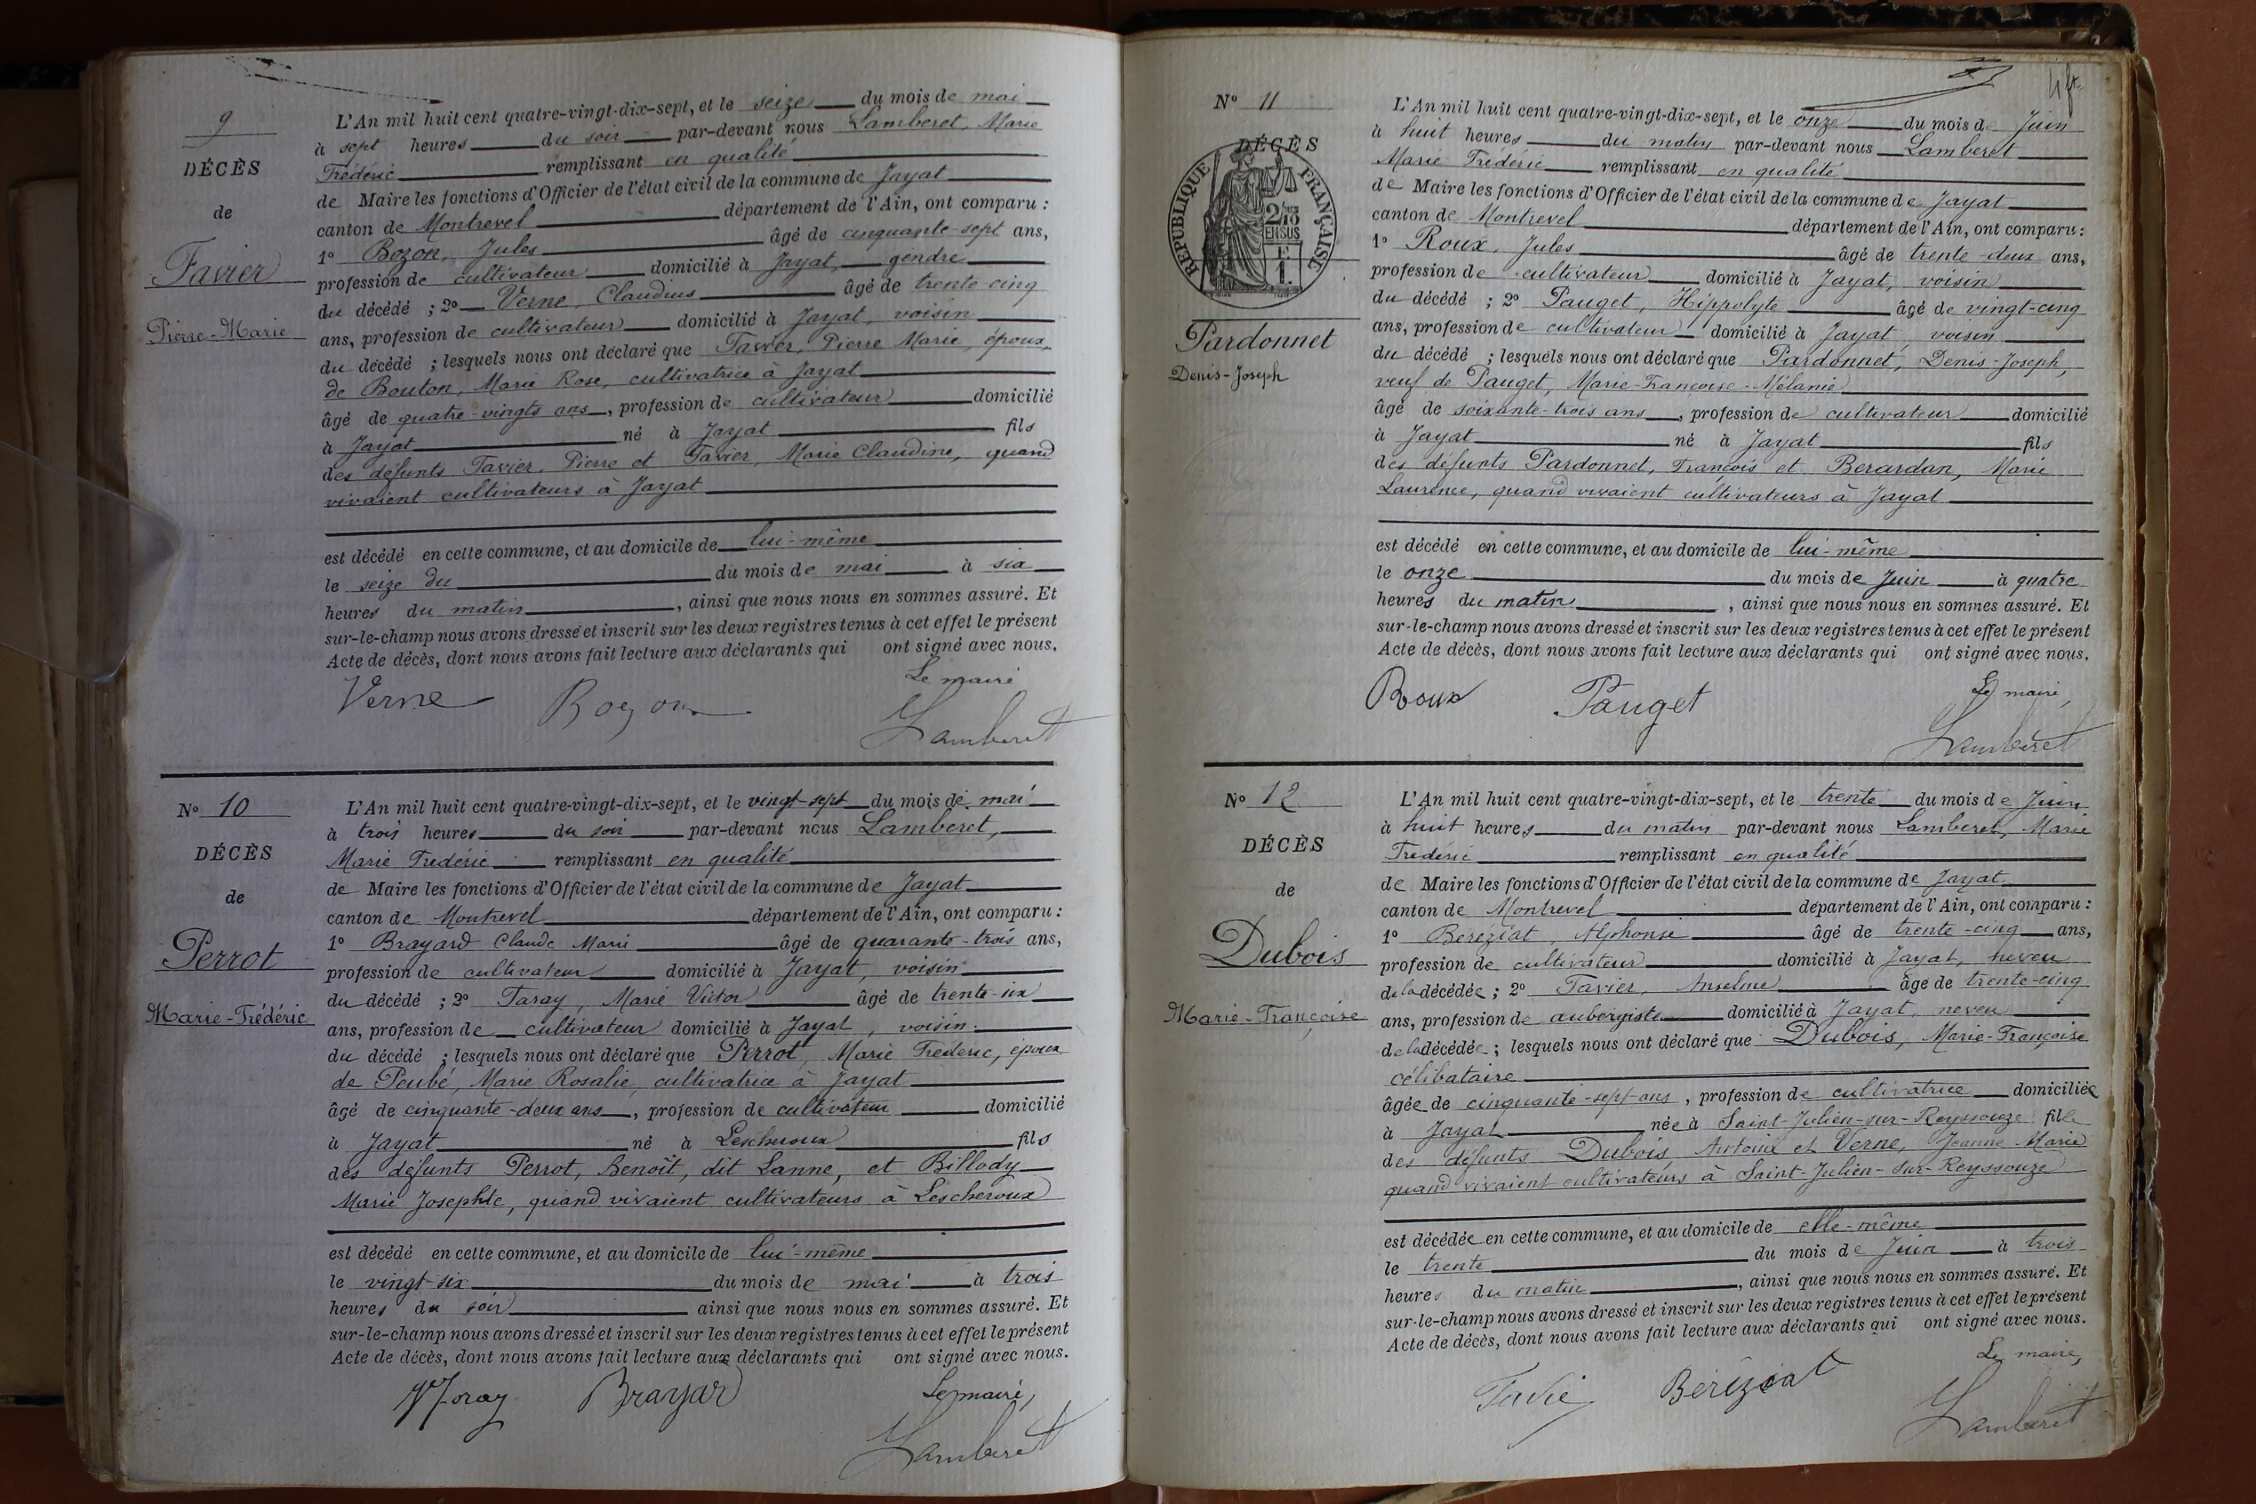 9
DÉCÈS
de
Favier
Pierre-Marie
L'An mil huit cent quatre-vingt-dix-sept, et le seize du mois de mai
à sept heures du soir par-devant nous Lamberet, Marie
Frédéric remplissant en qualité
de Maire les fonctions d'Officier de l'état civil de la commune de Jayat
canton de Montrevel département de l'Ain, ont comparu :
1º Bozon, Jules âgé de cinquante-sept ans,
profession de cultivateur domicilié à Jayat, gendre
du décédé ; 2º Verne, Claudius âgé de trente-cinq
ans, profession de cultivateur domicilié à Jayat, voisin
du décédé ; lesquels nous ont déclaré que Favier, Pierre Marie, époux
de Bouton, Marie Rose, cultivatrice à Jayat
âgé de quatre-vingts ans, profession de cultivateur domicilié
à Jayat né à Jayat fils
des défunts Favier, Pierre et Favier, Marie Claudine, quand
vivaient cultivateurs à Jayat
est décédé en cette commune, et au domicile de lui-même
le seize du du mois de mai à six
heures du matin, ainsi que nous nous en sommes assuré. Et
sur-le-champ nous avons dressé et inscrit sur les deux registres tenus à cet effet le présent
Acte de décès, dont nous avons fait lecture aux déclarants qui ont signé avec nous.
Le maire
Verne Bozon Lamberet
Nº 10
DÉCÈS
de
Perrot
Marie-Frédéric
L'An mil huit cent quatre-vingt-dix-sept, et le vingt-sept du mois de mai
à trois heures du soir par-devant nous Lamberet,
Marie Frédéric remplissant en qualité
de Maire les fonctions d'Officier de l'état civil de la commune de Jayat
canton de Montrevel département de l'Ain, ont comparu :
1º Brayard Claude Marie âgé de quarante-trois ans,
profession de cultivateur domicilié à Jayat, voisin
du décédé ; 2º Taray, Marie Victor âgé de trente-six
ans, profession de cultivateur domicilié à Jayat, voisin
du décédé ; lesquels nous ont déclaré que Perrot, Marie Frédéric, époux
de Poubé, Marie Rosalie, cultivatrice à Jayat
âgé de cinquante-deux ans, profession de cultivateur domicilié
à Jayat né à Lescheroux fils
des défunts Perrot, Benoît, dit Lanne, et Billody
Marie Josephte, quand vivaient cultivateurs à Lescheroux
est décédé en cette commune, et au domicile de lui-même
le vingt-six du mois de mai à trois
heures du soir ainsi que nous nous en sommes assuré. Et
sur-le-champ nous avons dressé et inscrit sur les deux registres tenus à cet effet le présent
Acte de décès, dont nous avons fait lecture aux déclarants qui ont signé avec nous.
Le maire,
Brayard Lamberet
Nº 11
DÉCÈS
RÉPUBLIQUE FRANÇAISE
2/10 EN SUS
Pardonnet
Denis-Joseph
L'An mil huit cent quatre-vingt-dix-sept, et le onze du mois de Juin
à huit heures du matin par-devant nous Lamberet
Marie Frédéric remplissant en qualité
de Maire les fonctions d'Officier de l'état civil de la commune de Jayat
canton de Montrevel département de l'Ain, ont comparu :
1º Roux, Jules âgé de trente-deux ans,
profession de cultivateur domicilié à Jayat, voisin
du décédé ; 2º Pauget, Hippolyte âgé de vingt-cinq
ans, profession de cultivateur domicilié à Jayat, voisin
du décédé ; lesquels nous ont déclaré que Pardonnet, Denis-Joseph,
veuf de Pauget, Marie-Françoise-Mélanie
âgé de soixante-trois ans, profession de cultivateur domicilié
à Jayat né à Jayat fils
des défunts Pardonnet, François et Berardan, Marie
Laurence, quand vivaient cultivateurs à Jayat
est décédé en cette commune, et au domicile de lui-même
le onze du mois de Juin à quatre
heures du matin, ainsi que nous nous en sommes assuré. Et
sur-le-champ nous avons dressé et inscrit sur les deux registres tenus à cet effet le présent
Acte de décès, dont nous avons fait lecture aux déclarants qui ont signé avec nous.
Le maire,
Roux Pauget Lamberet
Nº 12
DÉCÈS
de
Dubois
Marie-Françoise
L'An mil huit cent quatre-vingt-dix-sept, et le trente du mois de Juin
à huit heures du matin par-devant nous Lamberet, Marie
Frédéric remplissant en qualité
de Maire les fonctions d'Officier de l'état civil de la commune de Jayat
canton de Montrevel département de l'Ain, ont comparu :
1º Bereziat, Alphonse âgé de trente-cinq ans,
profession de cultivateur domicilié à Jayat, neveu
de la décédée ; 2º Favier, Anselme âgé de trente-cinq
ans, profession de aubergiste domicilié à Jayat, neveu
de la décédée ; lesquels nous ont déclaré que Dubois, Marie-Françoise
célibataire
âgée de cinquante-sept ans, profession de cultivatrice domiciliée
à Jayat née à Saint-Julien-sur-Reyssouze fille
des défunts Dubois Antoine et Verne, Jeanne-Marie
quand vivaient cultivateurs à Saint-Julien-sur-Reyssouze
est décédée en cette commune, et au domicile de elle-même
le trente du mois de Juin à trois
heures du matin, ainsi que nous nous en sommes assuré. Et
sur-le-champ nous avons dressé et inscrit sur les deux registres tenus à cet effet le présent
Acte de décès, dont nous avons fait lecture aux déclarants qui ont signé avec nous.
Le maire,
Favié Béréziat Lamberet